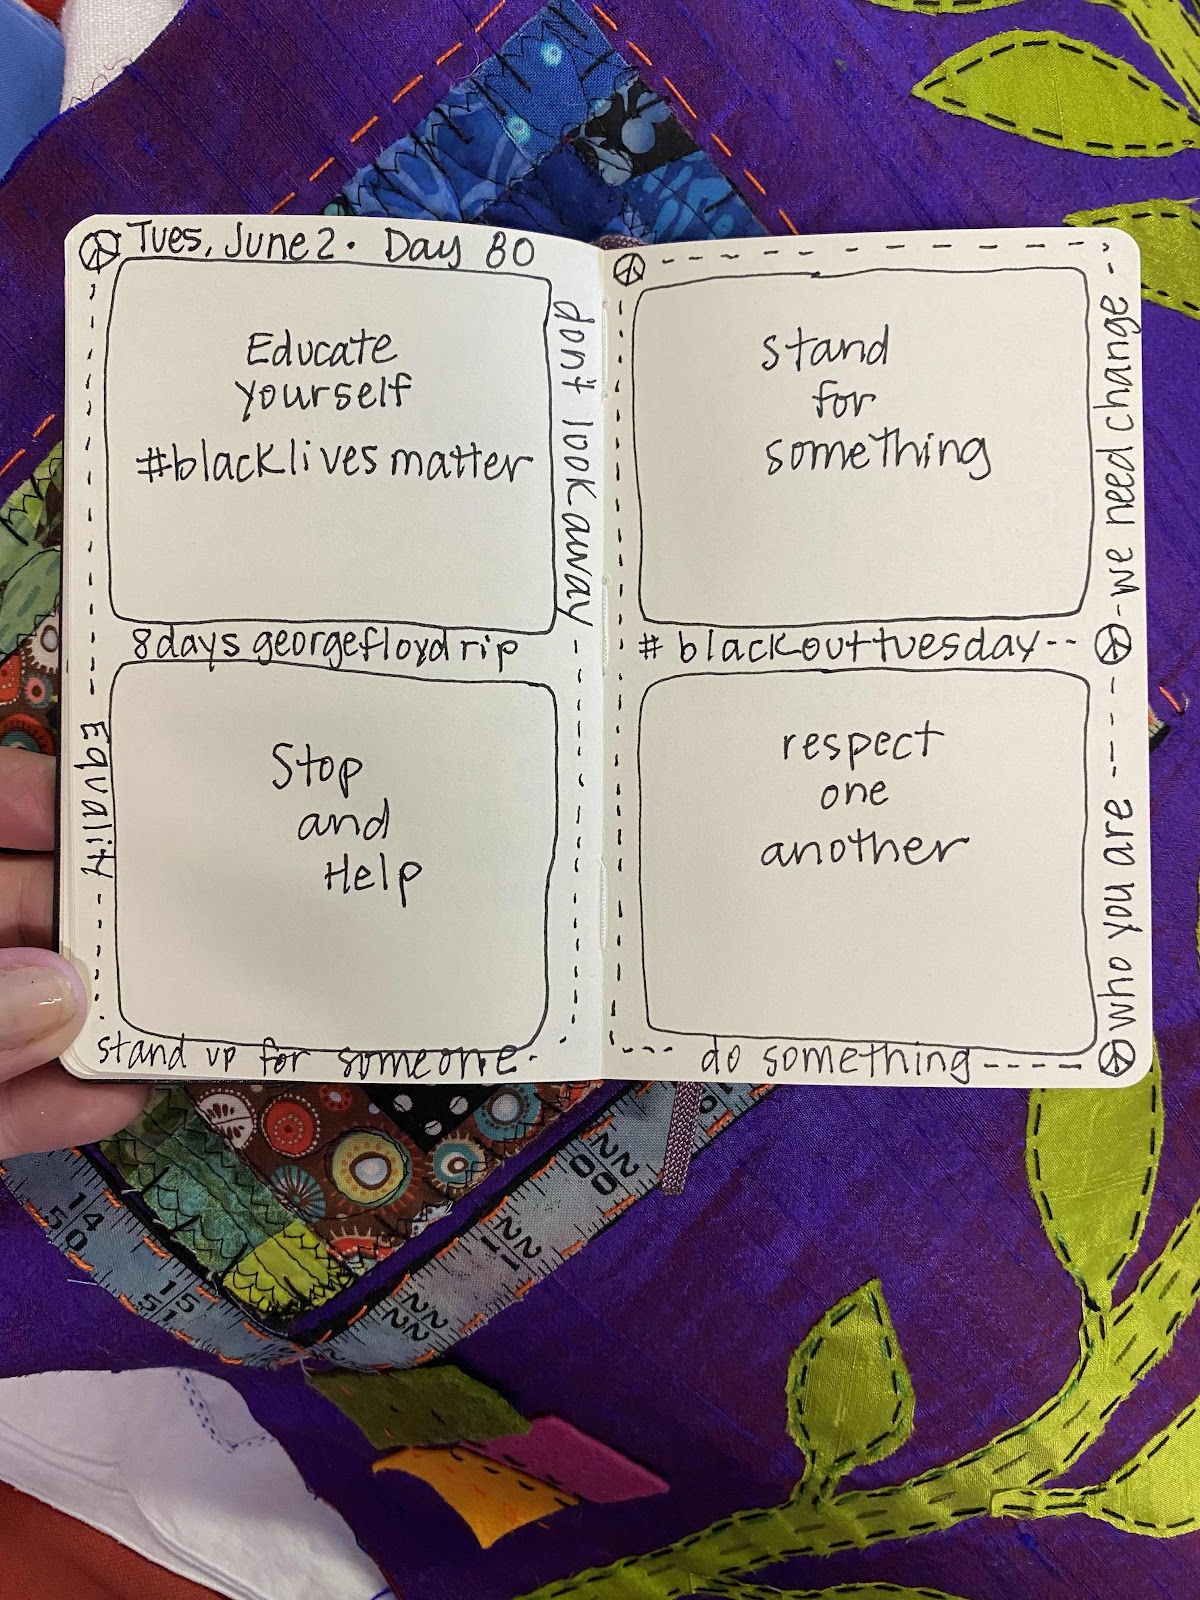 Tues, June 2. Day 80
Educate
yourself
#blacklivesmatter
don't look away
8days georgefloyd rip
Equality
Stop
and
Help
stand up for someone.
stand
for
something
we need change
#blackouttuesday
respect
one
another
who you are
do something
14
50
15
51
22
00
22
11
22
22